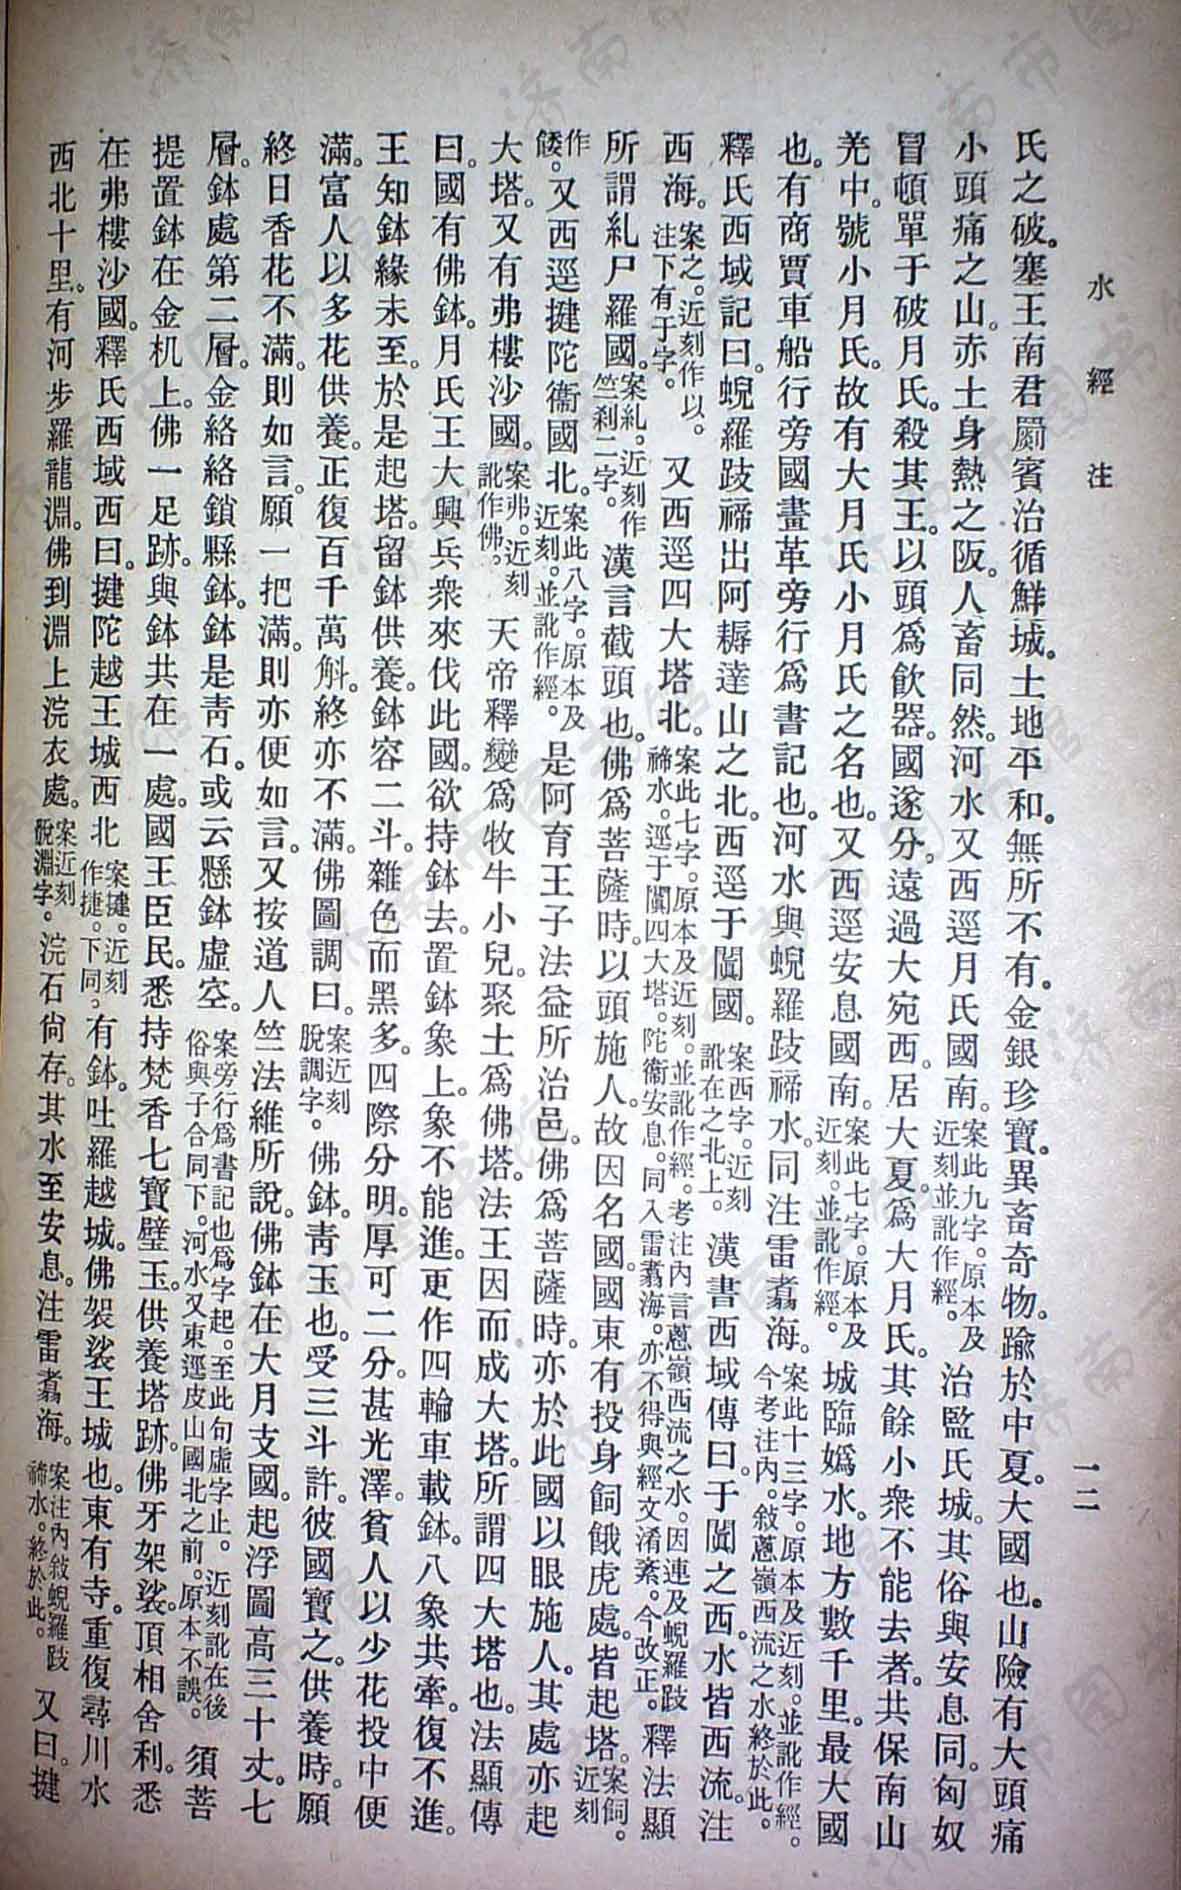 水經注
一二
氏之破。塞王南君罽賓。治循鮮城。土地平和。無所不有。金銀珍寶。異畜奇物。踰於中夏。大國也。山險有大頭痛
小頭痛之山。赤土身熱之阪。人畜同然。河水又西逕月氏國南。案此九字。原本及近刻並訛作經。治監氏城。其俗與安息同。匈奴
冒頓單于破月氏。殺其王。以頭爲飲器。國遂分。遠過大宛西。居大夏。爲大月氏。其餘小衆不能去者。共保南山
羌中。號小月氏。故有大月氏小月氏之名也。又西逕安息國南。案此七字。原本及近刻。並訛作經。城臨嬀水。地方數千里。最大國
也。有商賈車船行旁國。畫革旁行爲書記也。河水與蜺羅跂禘水。同注雷翥海。案此十三字。原本及近刻。並訛作經。今考注內。敍蔥嶺西流之水終於此。
釋氏西域記曰。蜺羅跂禘出阿耨達山之北。西逕于闐國。案西字。近刻訛在之北上。漢書西域傳曰。于闐之西。水皆西流。注
西海。案之。近刻作以。注下有于字。又西逕四大塔北。案此七字。原本及近刻。並訛作經。考注內言蔥嶺西流之水。因連及蜺羅跂禘水。逕于闐四大塔。陀衞安息。同入雷翥海。亦不得與經文淆紊。今改正。釋法顯
所謂糺尸羅國。案糺。近刻作竺剎二字。漢言截頭也。佛爲菩薩時。以頭施人。故因名國。國東有投身飼餓虎處。皆起塔。案飼。近刻
作餧。又西逕揵陀衞國北。案此八字。原本及近刻。並訛作經。是阿育王子法益所治邑。佛爲菩薩時。亦於此國以眼施人。其處亦起
大塔。又有弗樓沙國。案弗。近刻訛作佛。天帝釋變爲牧牛小兒。聚土爲佛塔。法王因而成大塔。所謂四大塔也。法顯傳
曰。國有佛鉢。月氏王大興兵衆。來伐此國。欲持鉢去。置鉢象上。象不能進。更作四輪車載鉢。八象共牽。復不進。
王知鉢緣未至。於是起塔。留鉢供養。鉢容二斗。雜色而黑多。四際分明。厚可二分。甚光澤。貧人以少花投中便
滿。富人以多花供養。正復百千萬斛。終亦不滿。佛圖調曰。案近刻脫調字。佛鉢。青玉也。受三斗許。彼國寶之。供養時。願
終日香花不滿。則如言。願一把滿。則亦便如言。又按道人竺法維所說。佛鉢在大月支國。起浮圖高三十丈。七
層。鉢處第二層。金絡絡鎖縣鉢。鉢是青石。或云懸鉢虛空。案旁行爲書記也爲字起。至此句虛字止。近刻訛在後俗與子合同下。河水又東逕皮山國北之前。原本不誤。須菩
提置鉢在金机上。佛一足跡。與鉢共在一處。國王臣民。悉持梵香七寶璧玉。供養塔跡。佛牙袈裟。頂相舍利。悉
在弗樓沙國。釋氏西域西曰。揵陀越王城西北案揵。近刻作捷。下同。有鉢。吐羅越城。佛袈裟王城也。東有寺。重復尋川水
西北十里。有河步羅龍淵。佛到淵上浣衣處。案近刻脫淵字。浣石尙存。其水至安息。注雷翥海。案注內敍蜺羅跂禘水。終於此。又曰。揵